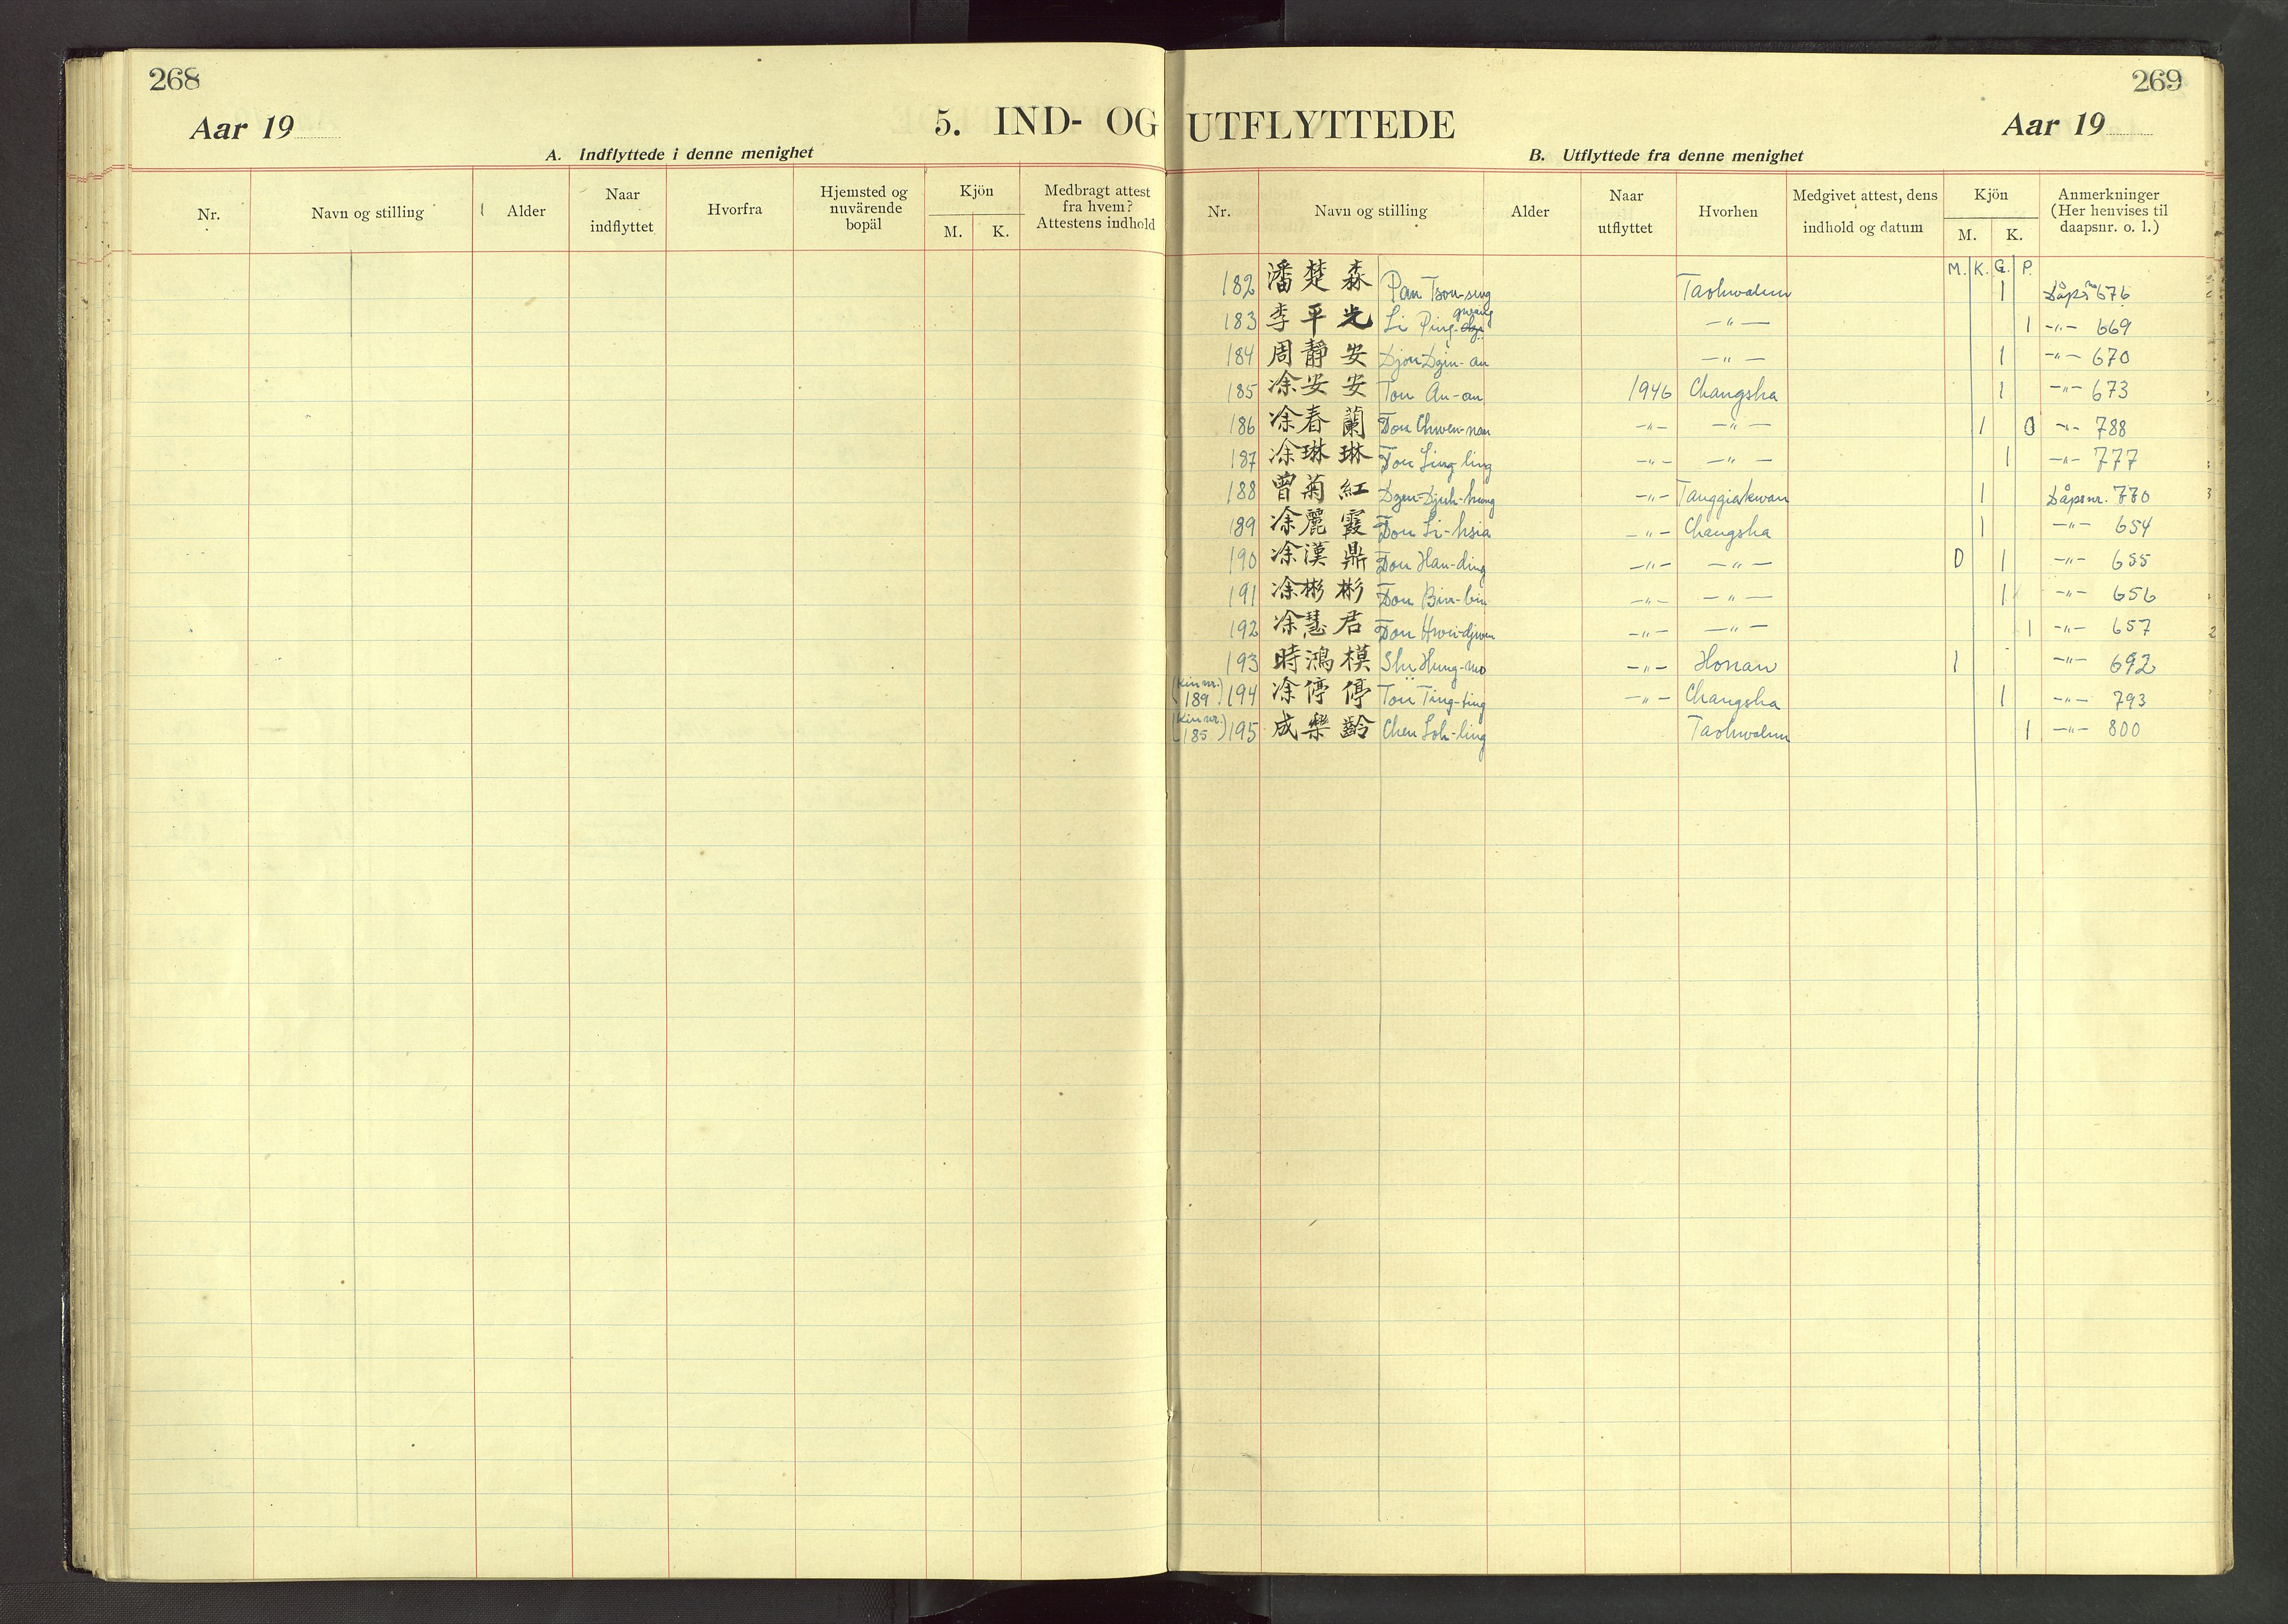 268
Aar 19
5. IND- OG
A. Indflyttede i denne menighet
Nr.
Navn og stilling
Alder
Naar indflyttet
Hvorfra
Hjemsted og nuvärende bopäl
Kjön
M. K.
Medbragt attest fra hvem? Attestens indhold
269
UTFLYTTEDE
Aar 19
B. Utflyttede fra denne menighet
Nr.
Navn og stilling
Alder
Naar utflyttet
Hvorhen
Medgivet attest, dens indhold og datum
Kjön
M. K.
Anmerkninger (Her henvises til daapsnr. o. l.)
M. K. G. P.
182 潘楚森 Pan Tsou-seng Taohwalun 1 Dåpsnr 676
183 李平光 Li Ping-guang —"— 1 —"— 669
184 周靜安 Djou Dzin-an —"— 1 —"— 670
185 凃安安 Tou An-an 1946 Changsha 1 —"— 673
186 凃春蘭 Tou Chwen-nan —"— —"— 1 0 —"— 788
187 凃琳琳 Tou Ling-ling —"— —"— 1 —"— 777
188 曾菊紅 Dzen-Djuh-hung —"— Tanggiakwan 1 Dåpsnr. 770
189 凃麗霞 Tou Li-hsia —"— Changsha 1 —"— 654
190 凃漢鼎 Tou Han-ding —"— —"— 0 1 —"— 655
191 凃彬彬 Tou Bin-bin —"— —"— 1 —"— 656
192 凃慧君 Tou Hwei-djwin —"— —"— 1 —"— 657
193 時鴻模 Shï Hung-mo —"— Honan 1 —"— 692
(Kin nr. 189) 194 凃停停 Tou Ting-ting —"— Changsha 1 —"— 793
(Kin nr. 185) 195 成樂齡 Chen Loh-ling Taohwalun 1 —"— 800